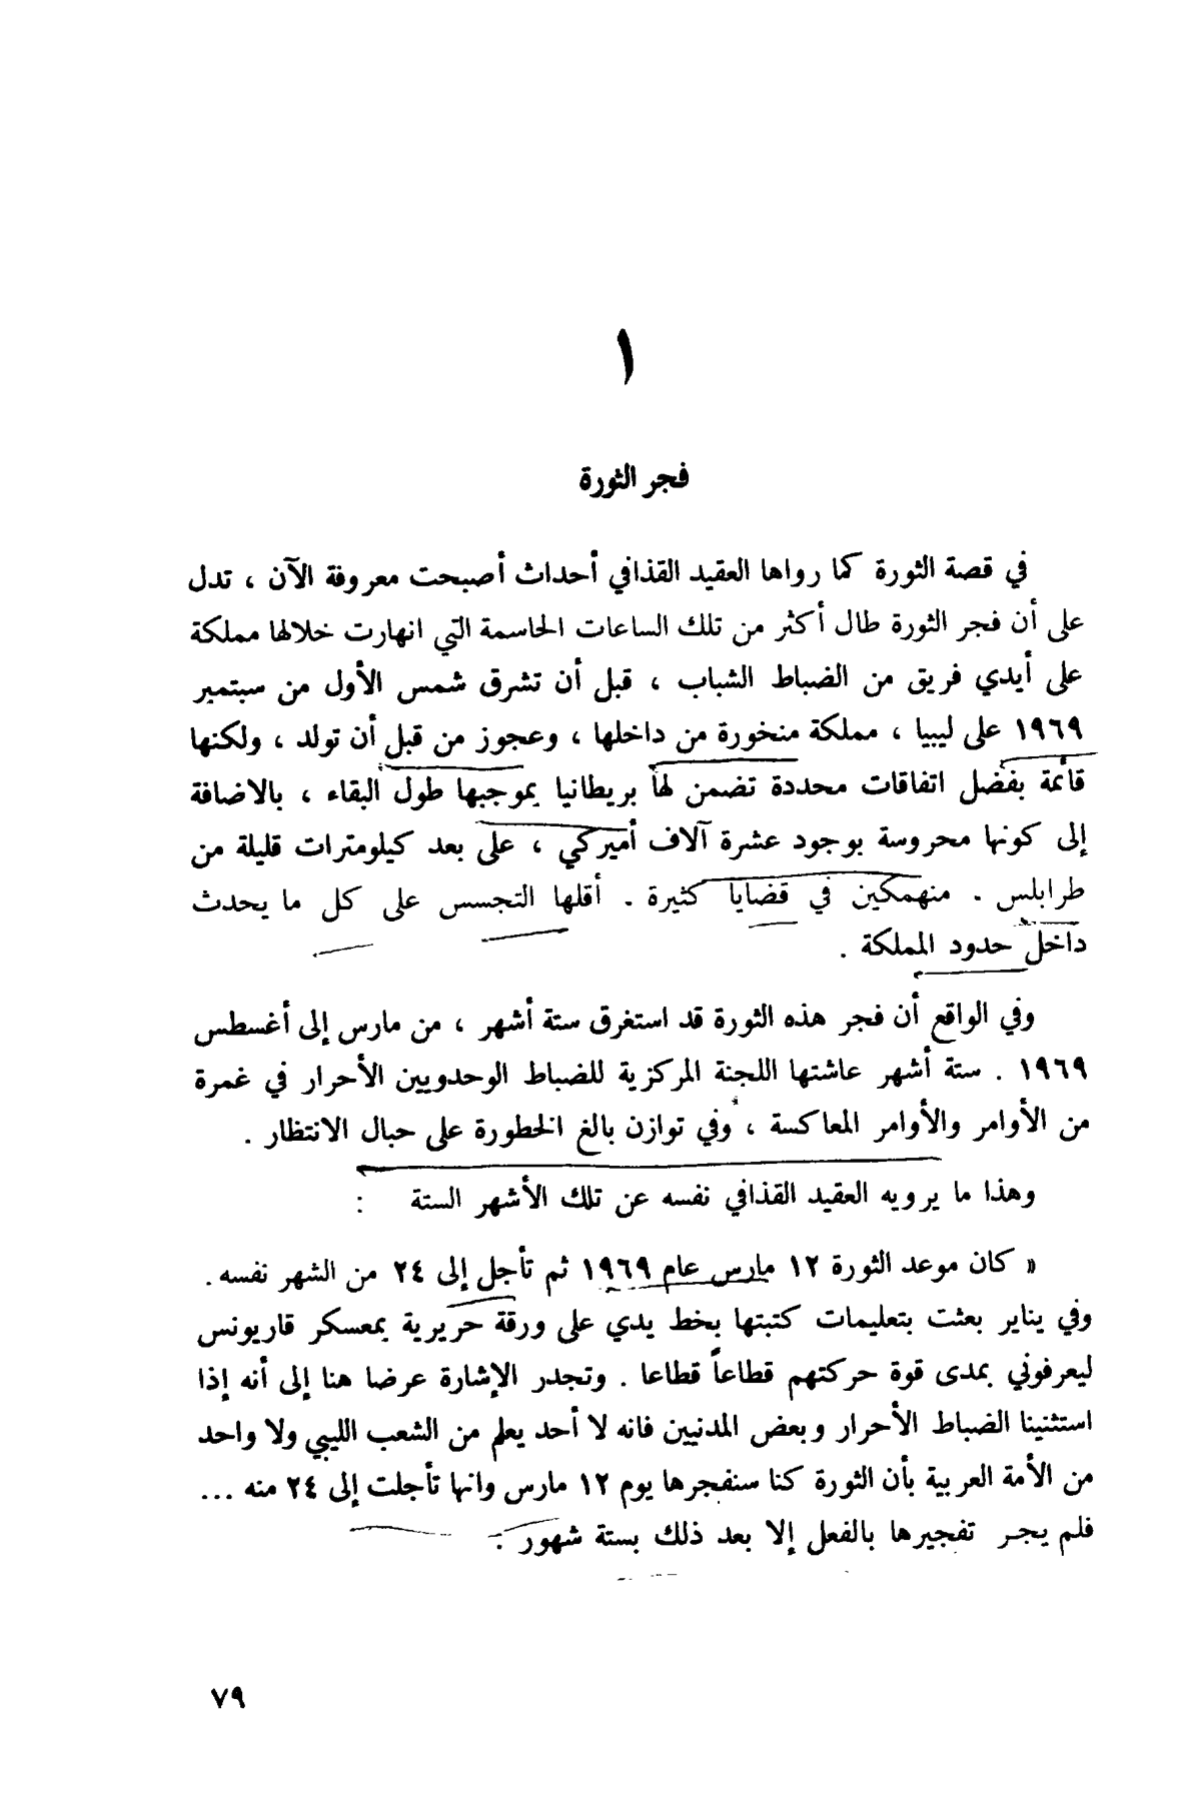 ١
فجر الثورة
في قصة الثورة كما رواها العقيد القذافي أحداث أصبحت معروفة الآن ، تدل
على أن فجر الثورة طال أكثر من تلك الساعات الحاسمة التي انهارت خلالها مملكة
على أيدي فريق من الضباط الشباب ، قبل أن تشرق شمس الأول من سبتمبر
١٩٦٩ على ليبيا ، مملكة منخورة من داخلها ، وعجوز من قبل أن تولد ، ولكنها
قائمة بفضل اتفاقات محددة تضمن لها بريطانيا بموجبها طول البقاء ، بالاضافة
إلى كونها محروسة بوجود عشرة آلاف أميركي ، على بعد كيلومترات قليلة من
طرابلس . منهمكين في قضايا كثيرة . أقلها التجسس على كل ما يحدث
داخل حدود المملكة .
وفي الواقع أن فجر هذه الثورة قد استغرق ستة أشهر ، من مارس إلى أغسطس
١٩٦٩ . ستة أشهر عاشتها اللجنة المركزية للضباط الوحدويين الأحرار في غمرة
من الأوامر والأوامر المعاكسة ، وفي توازن بالغ الخطورة على حبال الانتظار .
وهذا ما يرويه العقيد القذافي نفسه عن تلك الأشهر الستة :
« كان موعد الثورة ١٢ مارس عام ١٩٦٩ ثم تأجل إلى ٢٤ من الشهر نفسه .
وفي يناير بعثت بتعليمات كتبتها بخط يدي على ورقة حريرية بمعسكر قاريونس
ليعرفوني بمدى قوة حركتهم قطاعاً قطاعا . وتجدر الإشارة عرضا هنا إلى أنه إذا
استثنينا الضباط الأحرار وبعض المدنيين فانه لا أحد يعلم من الشعب الليبي ولا واحد
من الأمة العربية بأن الثورة كنا سنفجرها يوم ١٢ مارس وانها تأجلت إلى ٢٤ منه ...
فلم يجر تفجيرها بالفعل إلا بعد ذلك بستة شهور .
٧٩